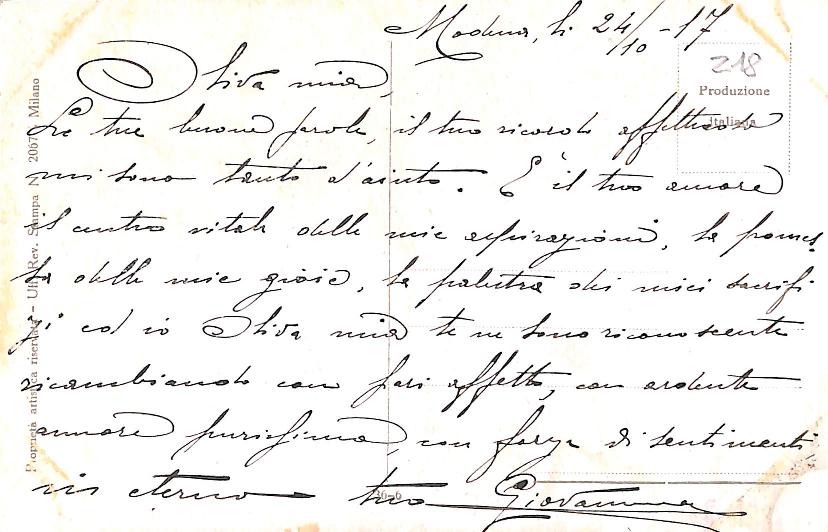 Modena, li 24/10 - 17
218
Produzione
italiana
Oliva mia,
Le tue buone parole, il tuo ricordo affettuoso
mi sono tanto d'aiuto. È il tuo amore
il centro vitale delle mie aspirazioni, la promes
sa delle mie gioie, la palestra dei miei sacrifi
zi ed io Oliva mia te ne sono riconoscente
ricambiando con pari affetto, con ardente
amore purissimo, con forza di sentimenti
in eterno tuo Giovanni
Proprietà artistica riservata - Uff. Rev. Stampa N. 2067 Milano